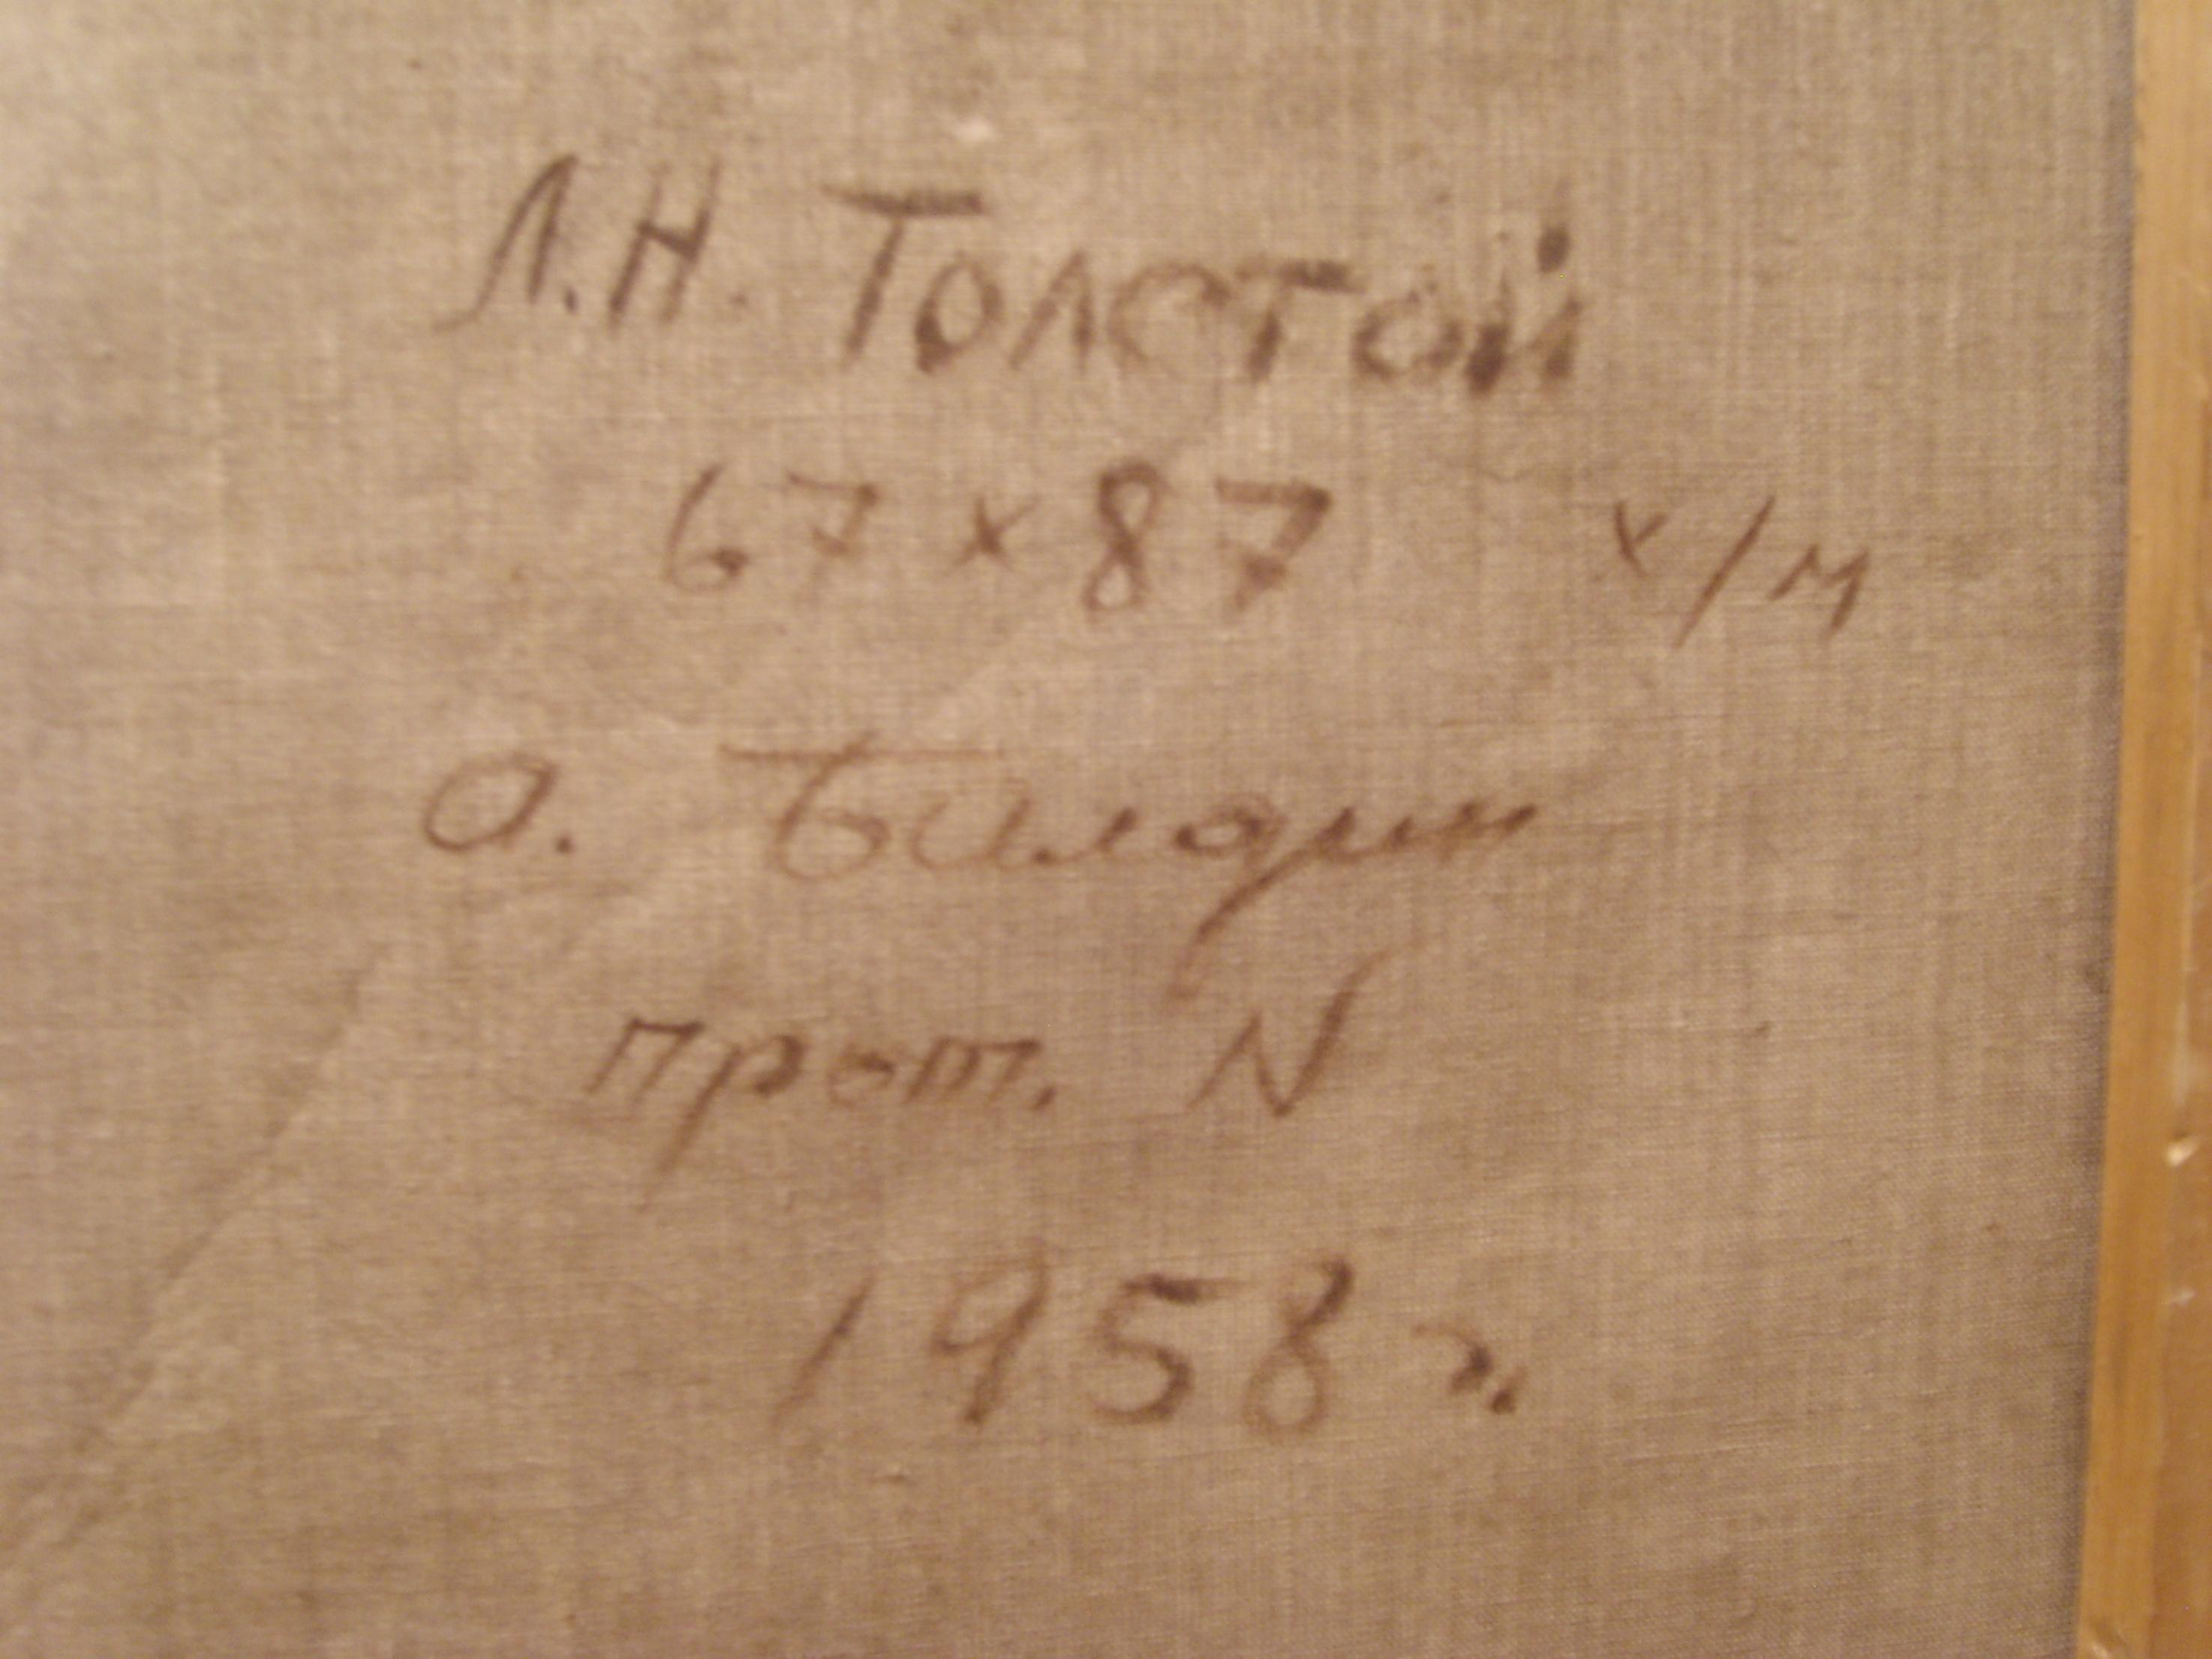 Л.Н. Толстой
67×87 х/м
О. Балдин
прот. N
1958 г.